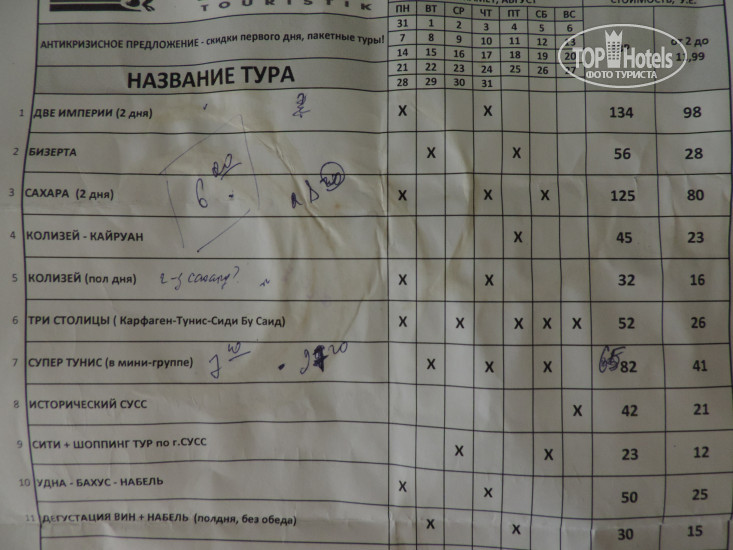 TOURISTIK
АВГУСТ
ПН ВТ СР ЧТ ПТ СБ ВС
31 1 2 3 4 5 6
АНТИКРИЗИСНОЕ ПРЕДЛОЖЕНИЕ - скидки первого дня, пакетные туры!
7 8 9 10 11 12 13
от 2 до
14 15 16 17 18 19 20
11,99
НАЗВАНИЕ ТУРА
21 22 23 24 25 26 27
28 29 30 31
TOP Hotels
ФОТО ТУРИСТА
1 ДВЕ ИМПЕРИИ (2 дня) 2 X X 134 98
2 БИЗЕРТА X X 56 28
3 САХАРА (2 дня) 6 00 X X X 125 80
4 КОЛИЗЕЙ - КАЙРУАН X 45 23
5 КОЛИЗЕЙ (пол дня) X X 32 16
6 ТРИ СТОЛИЦЫ ( Карфаген-Тунис-Сиди Бу Саид) X X X X X 52 26
7 СУПЕР ТУНИС (в мини-группе) X X X 65 82 41
8 ИСТОРИЧЕСКИЙ СУСС X 42 21
9 СИТИ + ШОППИНГ ТУР по г.СУСС X X 23 12
10 УДНА - БАХУС - НАБЕЛЬ X X 50 25
11 ДЕГУСТАЦИЯ ВИН + НАБЕЛЬ (полдня, без обеда) X X 30 15